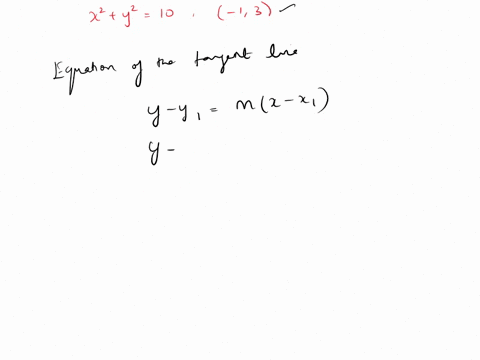 x² + y² = 10 . (-1, 3) ✓
Equation of the tangent line
y - y₁ = m(x - x₁)
y -